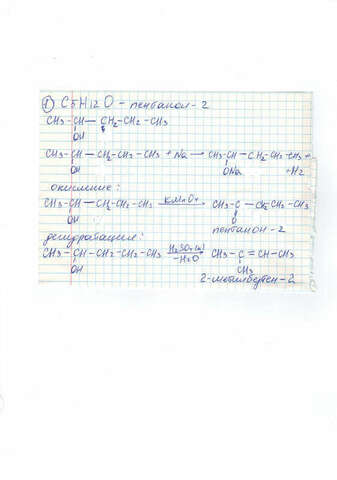 1) C5H12O - пентанол-2
CH3-CH-CH2-CH2-CH3
OH
CH3-CH-CH2-CH2-CH3 + Na → CH3-CH-CH2-CH2-CH3 +
OH ONa +H2
окисление:
CH3-CH-CH2-CH2-CH3 KMnO4 → CH3-C-CH2-CH2-CH3
OH O
пентанон-2
дегидратация:
CH3-CH-CH2-CH2-CH3 H2SO4(к) -H2O → CH3-C=CH-CH3
OH CH3
2-метилбутен-2